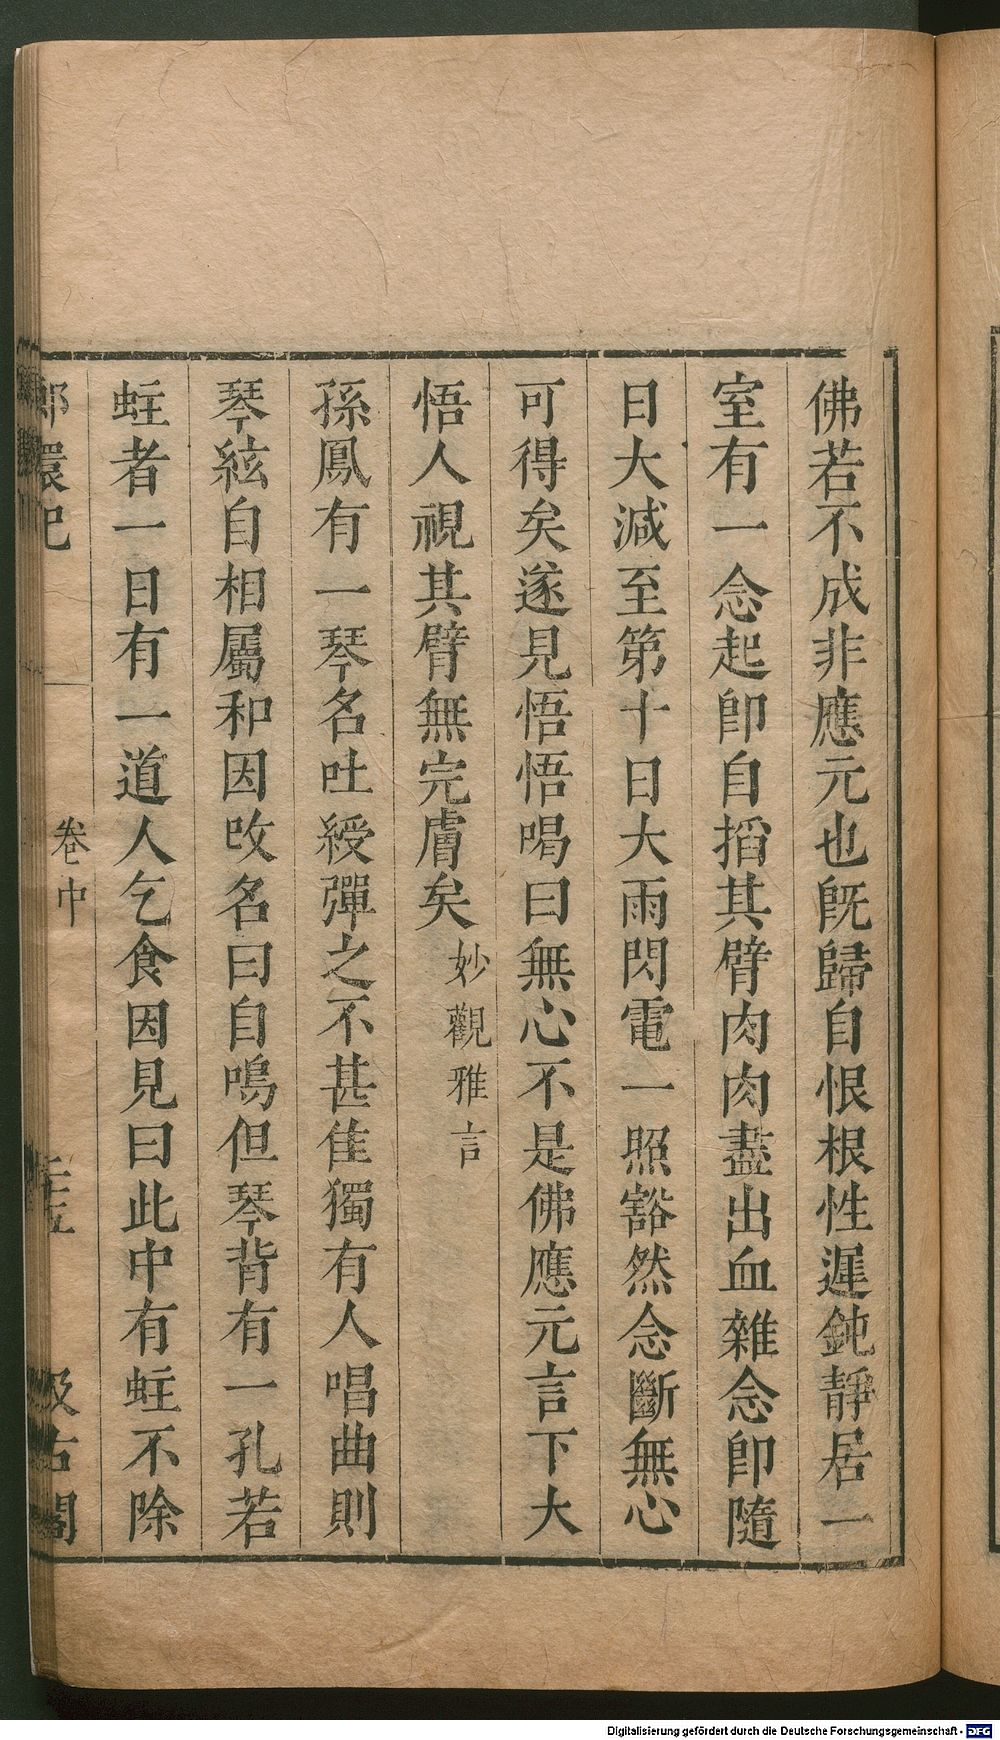 佛若不成非應元也旣歸自恨根性遲鈍靜居一
室有一念起卽自搯其臂肉肉盡出血雜念卽隨
日大減至第十日大雨閃電一照豁然念斷無心
可得矣遂見悟悟喝曰無心不是佛應元言下大
悟人視其臂無完膚矣妙觀雅言
孫鳳有一琴名吐綬彈之不甚佳獨有人唱曲則
琴絃自相屬和因改名曰自鳴但琴背有一孔若
蛀者一日有一道人乞食因見曰此中有蛀不除
環記 卷中 汲古閣
Digitalisierung gefördert durch die Deutsche Forschungsgemeinschaft - DFG